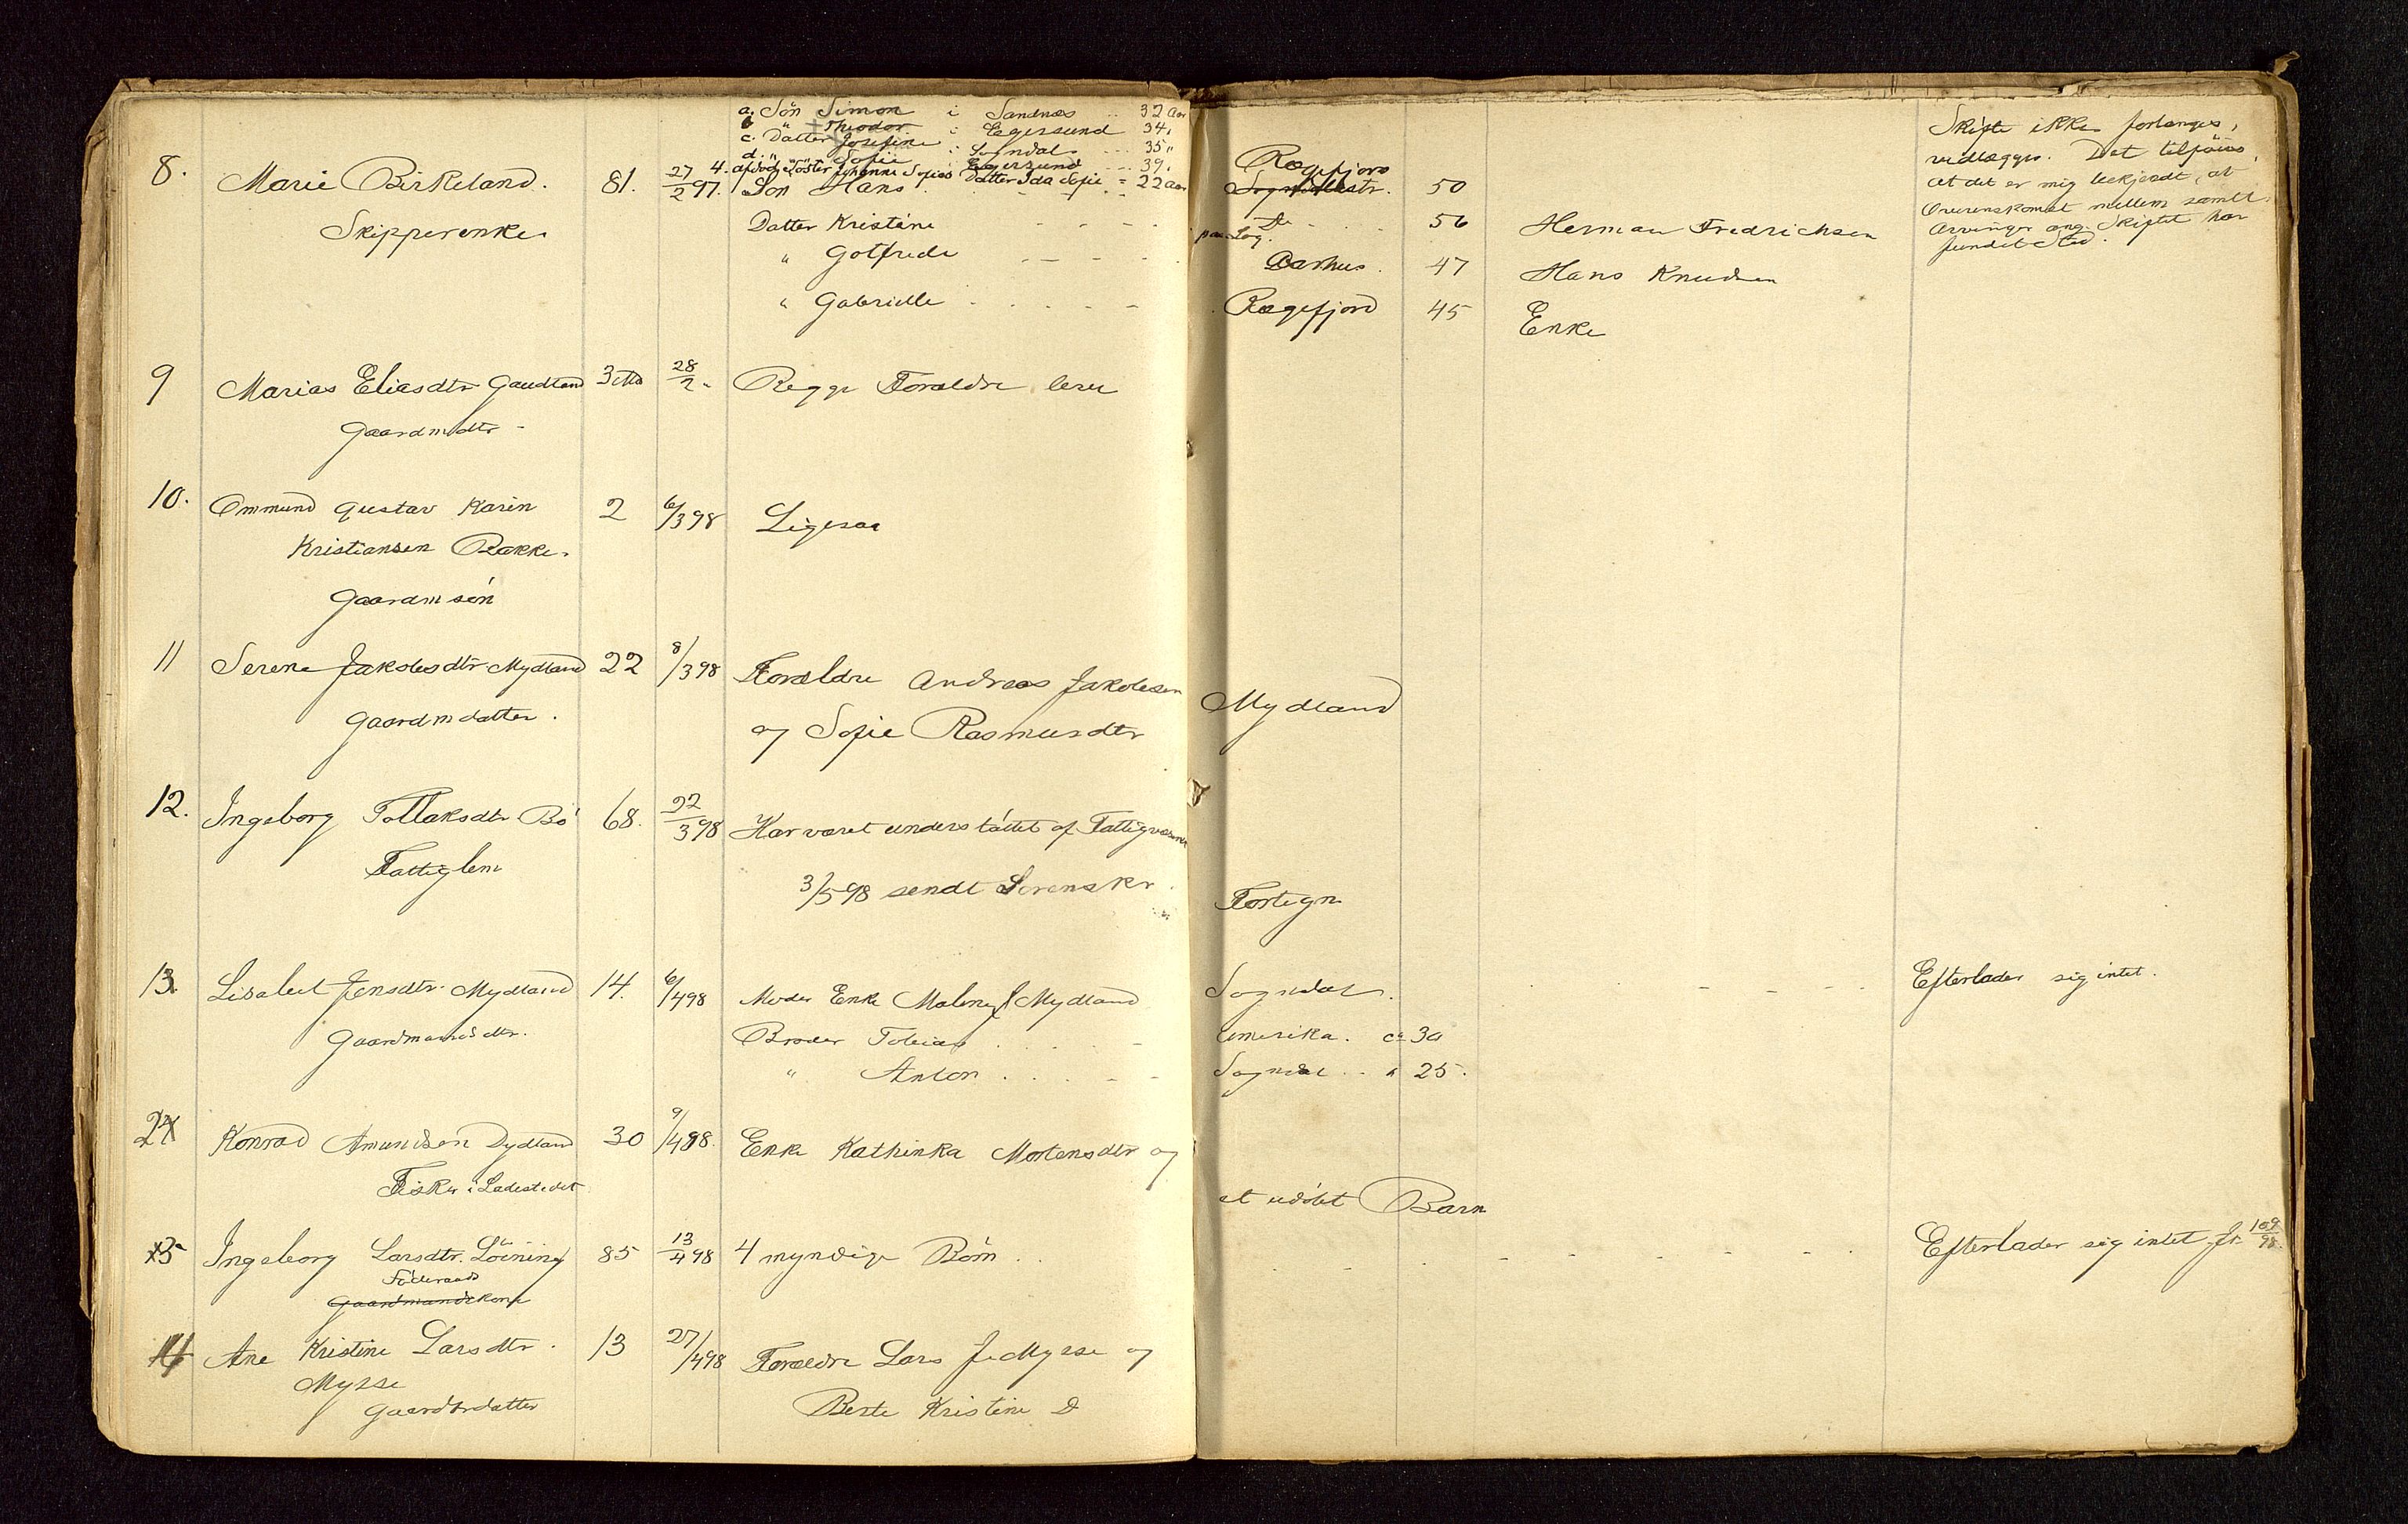 a. Søn Simon i Sandnæs 32 Aar
b " Theodor i Egersund 34 "
c. Datter Josefine i Sogndal 35 "
d. " Sofie i Egersund 39 "
4. afdøde Søster Johanne Sofies Datter Ida Sofie = 22 Aar
8. Marie Birkeland. 81. 27/2 97. Søn Hans Rægefjord 50
Skipperenke
Datter Kristine Do 56 Herman Fredrichsen
" Gotfrede Aarhus. 47 Hans Knudsen
" Gabrielle Rægefjord 45 Enke
Skifte ikke forlanges,
vedlægges. Det tilføies,
at det er mig bekjendt, at
Overenskomst mellem samtl.
Arvinger ang. Skiftet har
fundet Sted.
9 Marias Eliasdtr Gaudland 3 Md 28/2 " Begge Forældre lever
Gaardmdtr
10. Ommund Gustav Karin 2 6/3 98 Ligesaa
Kristiansen Rakke.
Gaardmsøn
11 Serene Jakobsdtr Mydland 22 8/3 98 Forældre Andreas Jakobsen
Gaardmdatter. og Sofie Rasmusdtr Mydland
12. Ingeborg Tollaksdtr Bø 68. 22/3 98 Har været understøttet af Fattigvæsenet
Fattiglem
3/5 98 sendt Sorenskr. Fortegn
13. Lisabet Jensdtr. Mydland 14. 6/4 98 Moder Enke Malene J Mydland Sogndal. Efterlader sig intet.
Gaardmandsdtr. Broder Tobias Amerika. ca 30
" Anton Sogndal " 25.
24 Konrad Amundsen Dydland 30 9/4 98. Enke Kathinka Mortensdtr og
Fisker i Ladestedet et udøbt Barn
15 Ingeborg Larsdtr. Løining 85 13/4 98 4 myndige Børn Efterlader sig intet Jr. 109/98.
Føderaads
Gaardmandskone
16 Ane Kristine Larsdtr. 13 27/4 98 Forældre Lars J Mysse og
Mysse
Gaardbrdatter Berte Kristine D